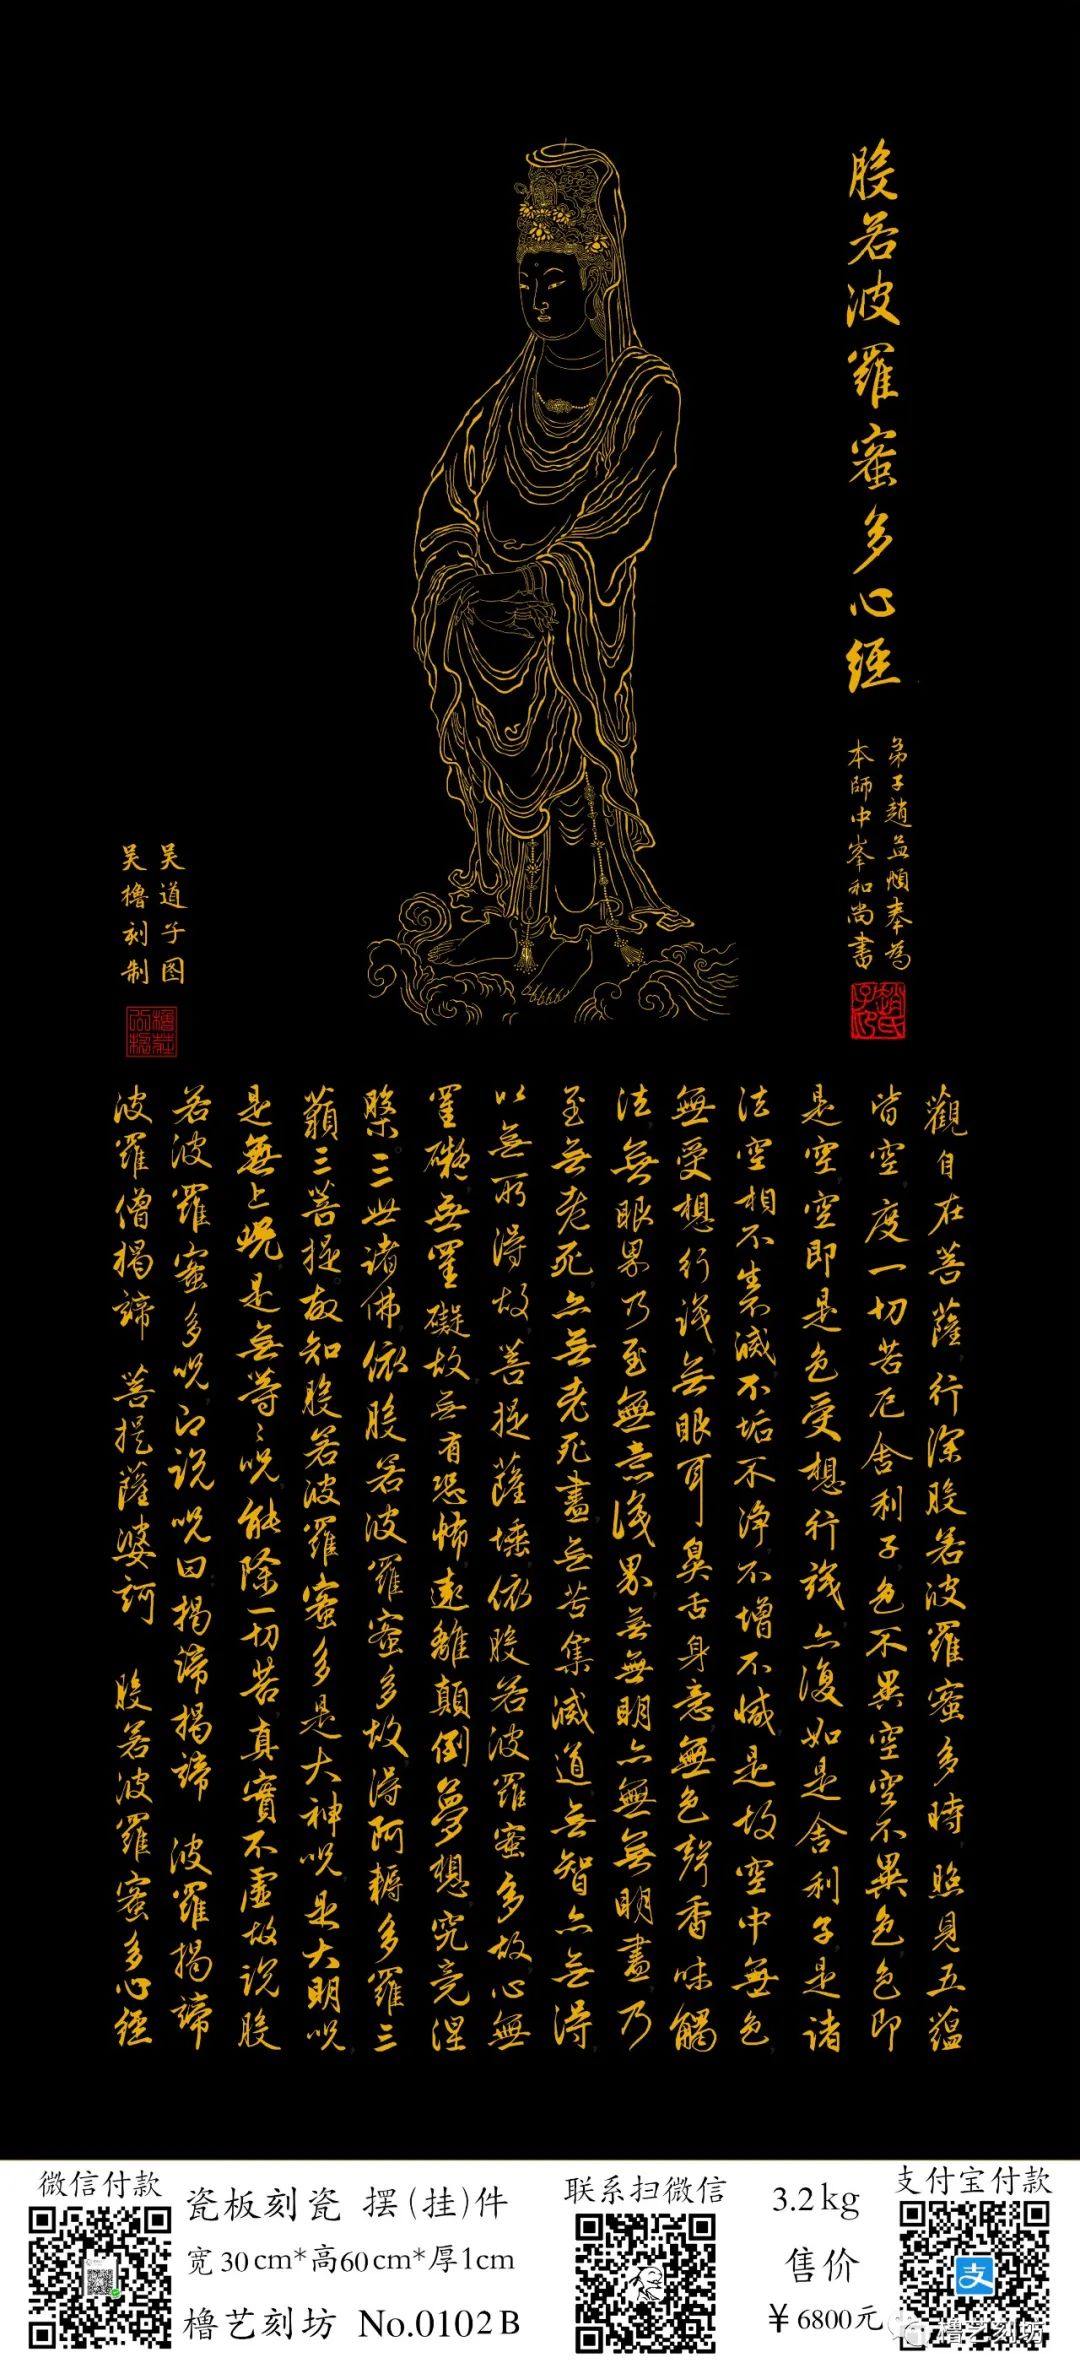 般若波羅蜜多心經
弟子趙孟頫奉為
本師中峯和尚書
趙氏子昂
吴道子图
吴橹刻制
觀自在菩薩行深般若波羅蜜多時,照見五蘊
皆空,度一切苦厄舍利子,色不異空空不異色,色即
是空,空即是色受想行識亦復如是舍利子是諸
法空相不生不滅不垢不淨,不增不減是故空中無色,
無受想行識,無眼耳鼻舌身意無色聲香味觸
法,無眼界乃至無意識界無無明亦無無明盡,乃
至無老死,亦無老死盡無苦集滅道,無智亦無得,
以無所得故,菩提薩埵依般若波羅蜜多故,心無
罣礙,無罣礙故,無有恐怖,遠離顛倒夢想,究竟涅
槃。三世諸佛,依般若波羅蜜多故,得阿耨多羅三
藐三菩提。故知般若波羅蜜多是大神呪,是大明呪,
是無上呪,是無等々呪,能除一切苦,真實不虛故説般
若波羅蜜多呪,即説呪曰,揭諦揭諦 波羅揭諦
波羅僧揭諦 菩提薩婆訶 般若波羅蜜多心經
微信付款
瓷板刻瓷 摆(挂)件
宽30cm*高60cm*厚1cm
橹艺刻坊 No.0102B
联系扫微信
3.2kg
售价
¥6800元
支付宝付款
支
橹艺刻坊